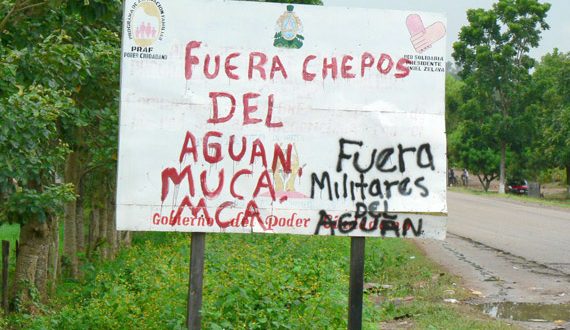 PROGRAMA DE ASIGNACION FAMILIAR
PRAF
PODER CIUDADANO
RED SOLIDARIA
PRESIDENTE
MANUEL ZELAYA
FUERA CHEPOS
DEL
AGUAN
MUCA.
MCA.
Fuera
Militares
DEL
AGUAN
Gobierno del Poder